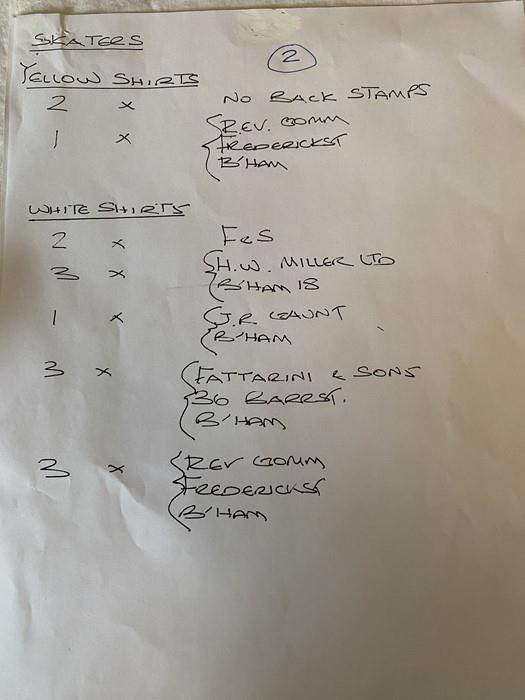 SKATERS
2
YELLOW SHIRTS
2 x NO BACK STAMPS
1 x R.EV. GOMM
FREDERICKST
B'HAM
WHITE SHIRTS
2 x F&S
3 x H.W. MILLER LTD
B'HAM 18
1 x J.R. GAUNT
B'HAM
3 x FATTARINI & SONS
36 BARRST.
B'HAM
3 x REV GOMM
FREDERICKST
B'HAM